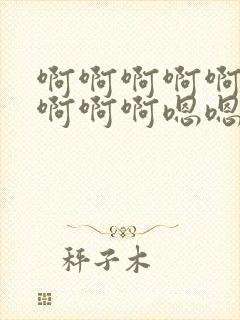 啊啊啊啊啊
啊啊啊嗯嗯
秤子木